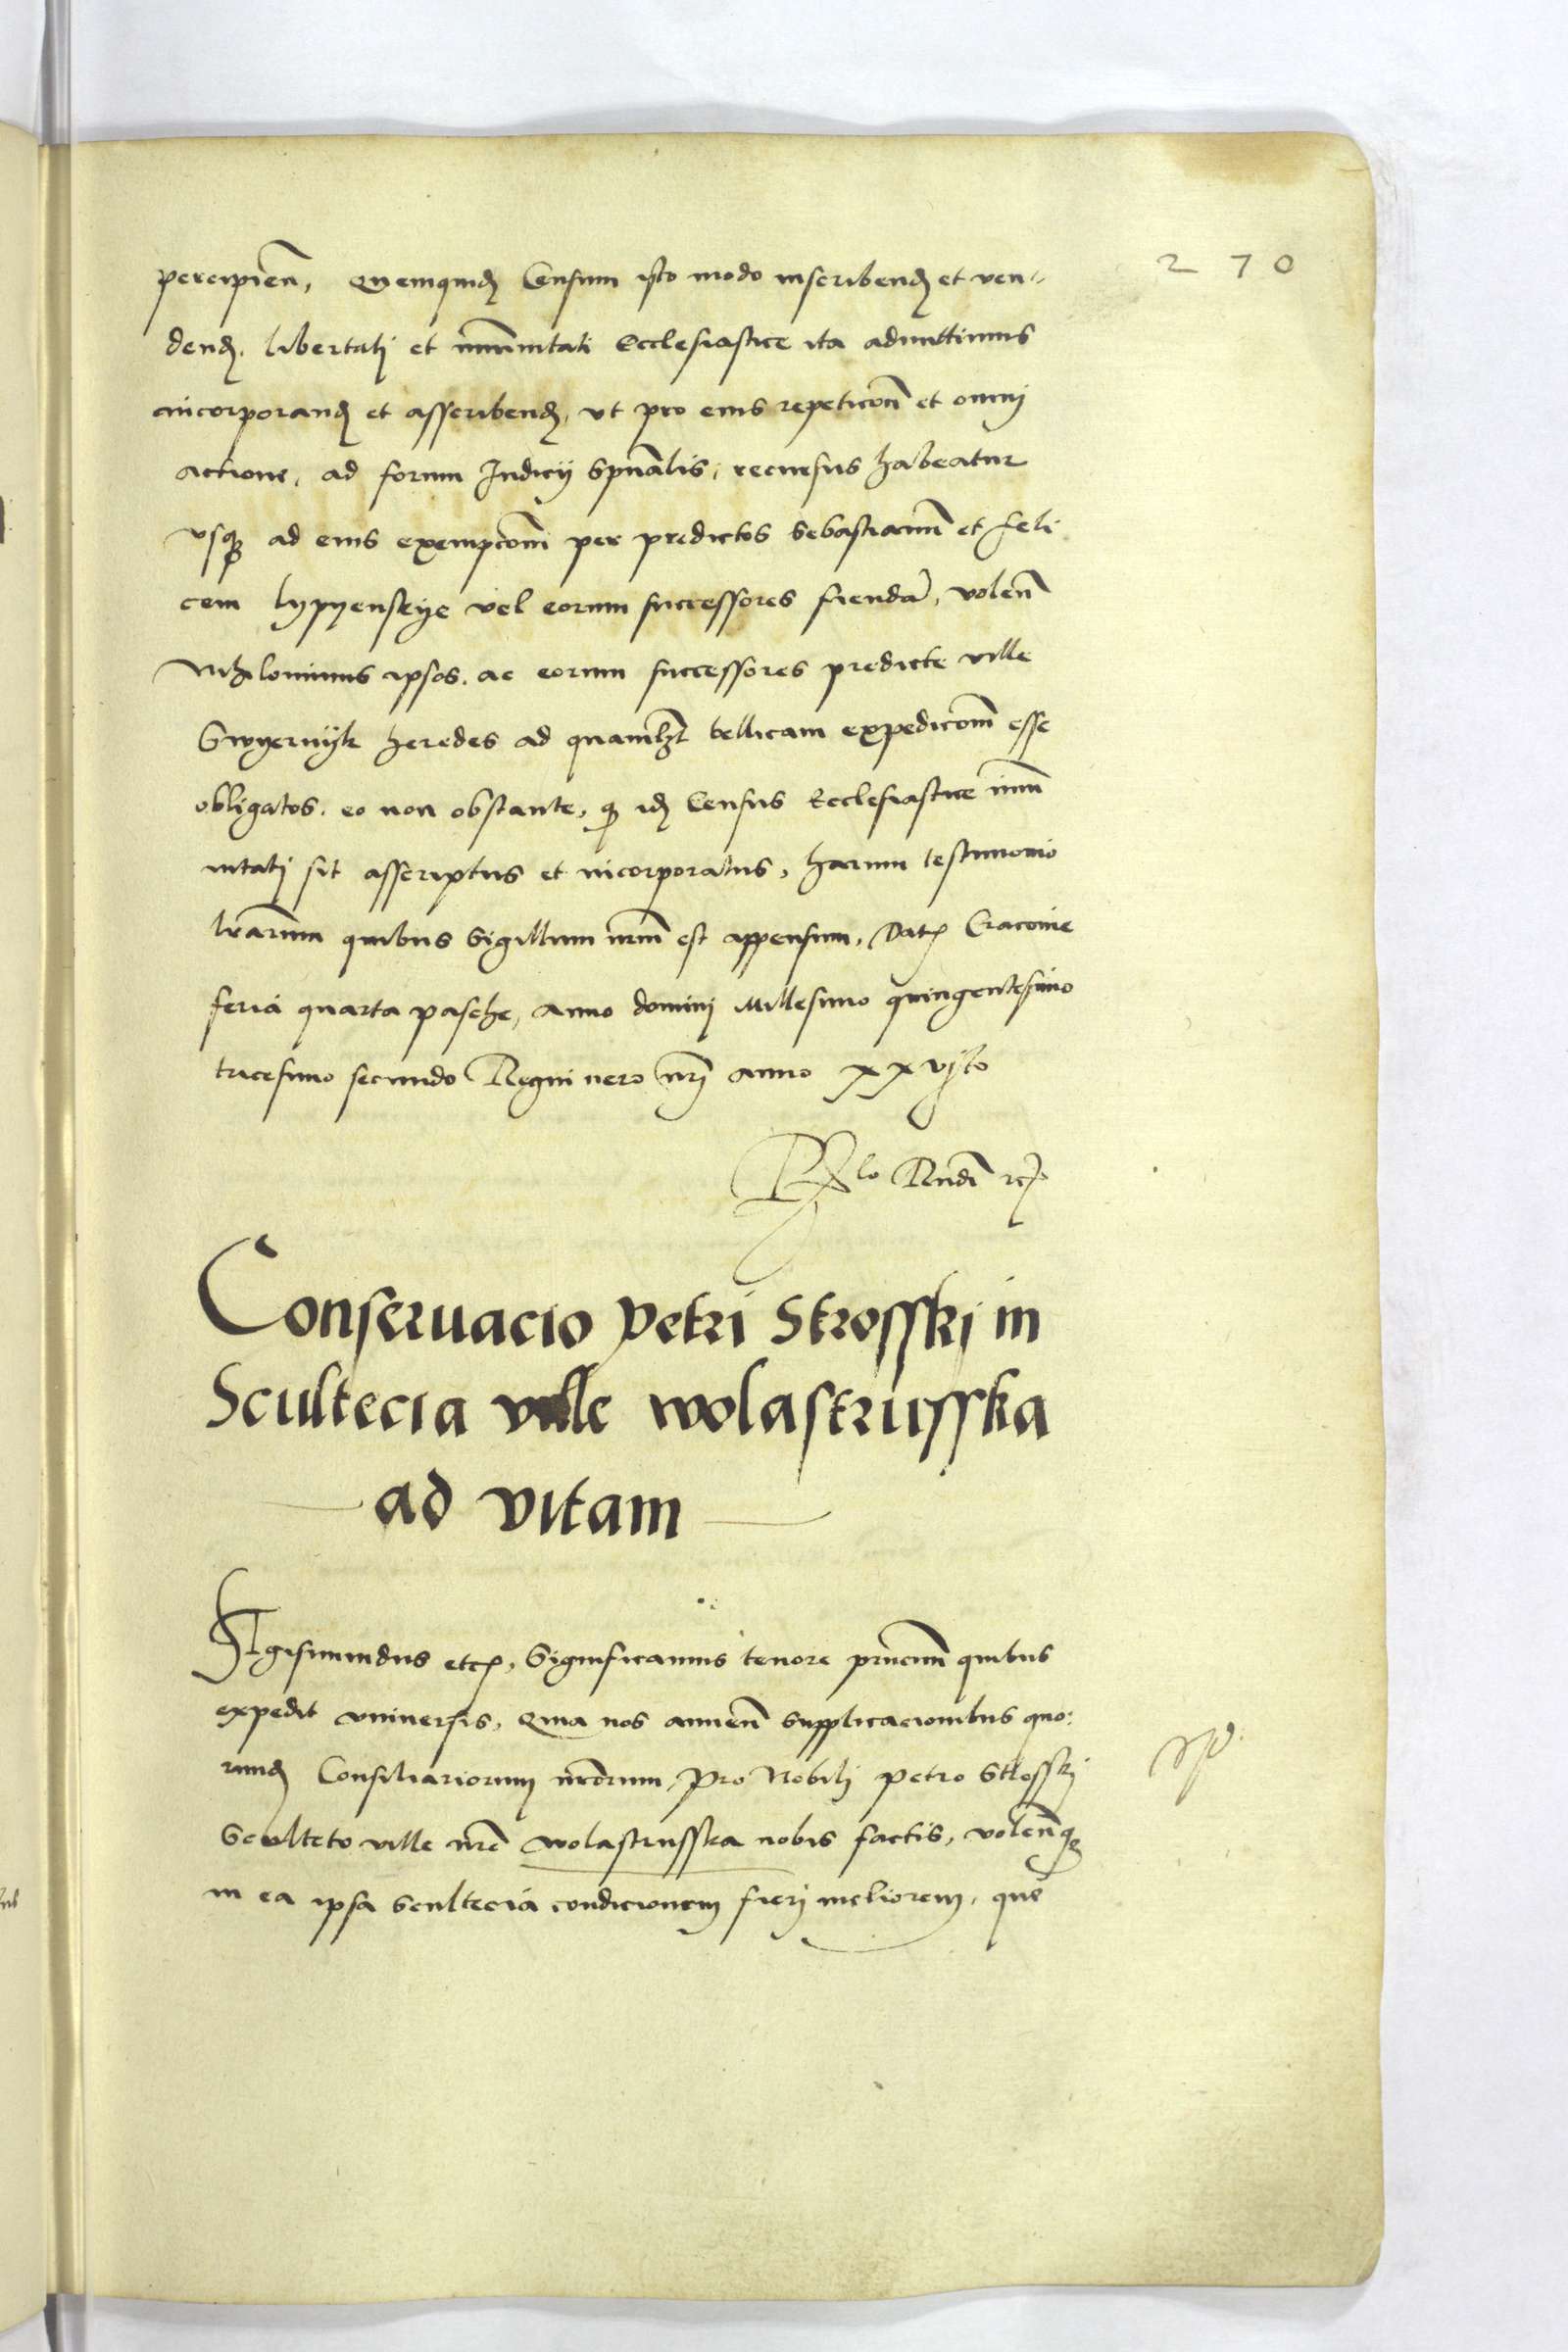 270
percipien̄, Quemquid Censum isto modo inscribend et ven=
dend, libertati et immunitati Ecclesiastice ita admittimus
incorporand et asscribend, vt pro eius repeticon̄ et omni
actione, ad forum Iudicij sp̄ualis, recursus habeatur
vsq ad eius exempcom̄ per predictos Sebastianum et feli
cem lypyenskye vel eorum successores fiendā, volen̄
Nihilominus ipsos, ac eorum successores predicte ville
Swyernyk heredes ad quamlꝫt bellicam expedicom̄ esse
obligatos, eo non obstante, q id Census Ecclesiastice im̄u
nitati sit asscriptus et incorporatus, harum testimonio
lr̄arum quibus Sigillum nr̄m est appensum, Dat Cracouie
feria quarta pasche, Anno domini Millesimo quingentesimo
tricesimo secundo Regni vero nr̄i anno xxvjto
Conseruacio Petri Strosski in
Scultecia ville wolastrusska
ad vitam
Sigismundus etc, Significamus tenore pn̄cium quibus
expedit vniuersis, Quia nos annuen̄ supplicacionibus quo:
rund Consiliariorum nr̄orum, pro Nobili Petro Strosski
Sculteto ville nr̄e wolastrusska nobis factis, volen̄q
in ea ipsa Scultecia condicionem fieri meliorem, quē